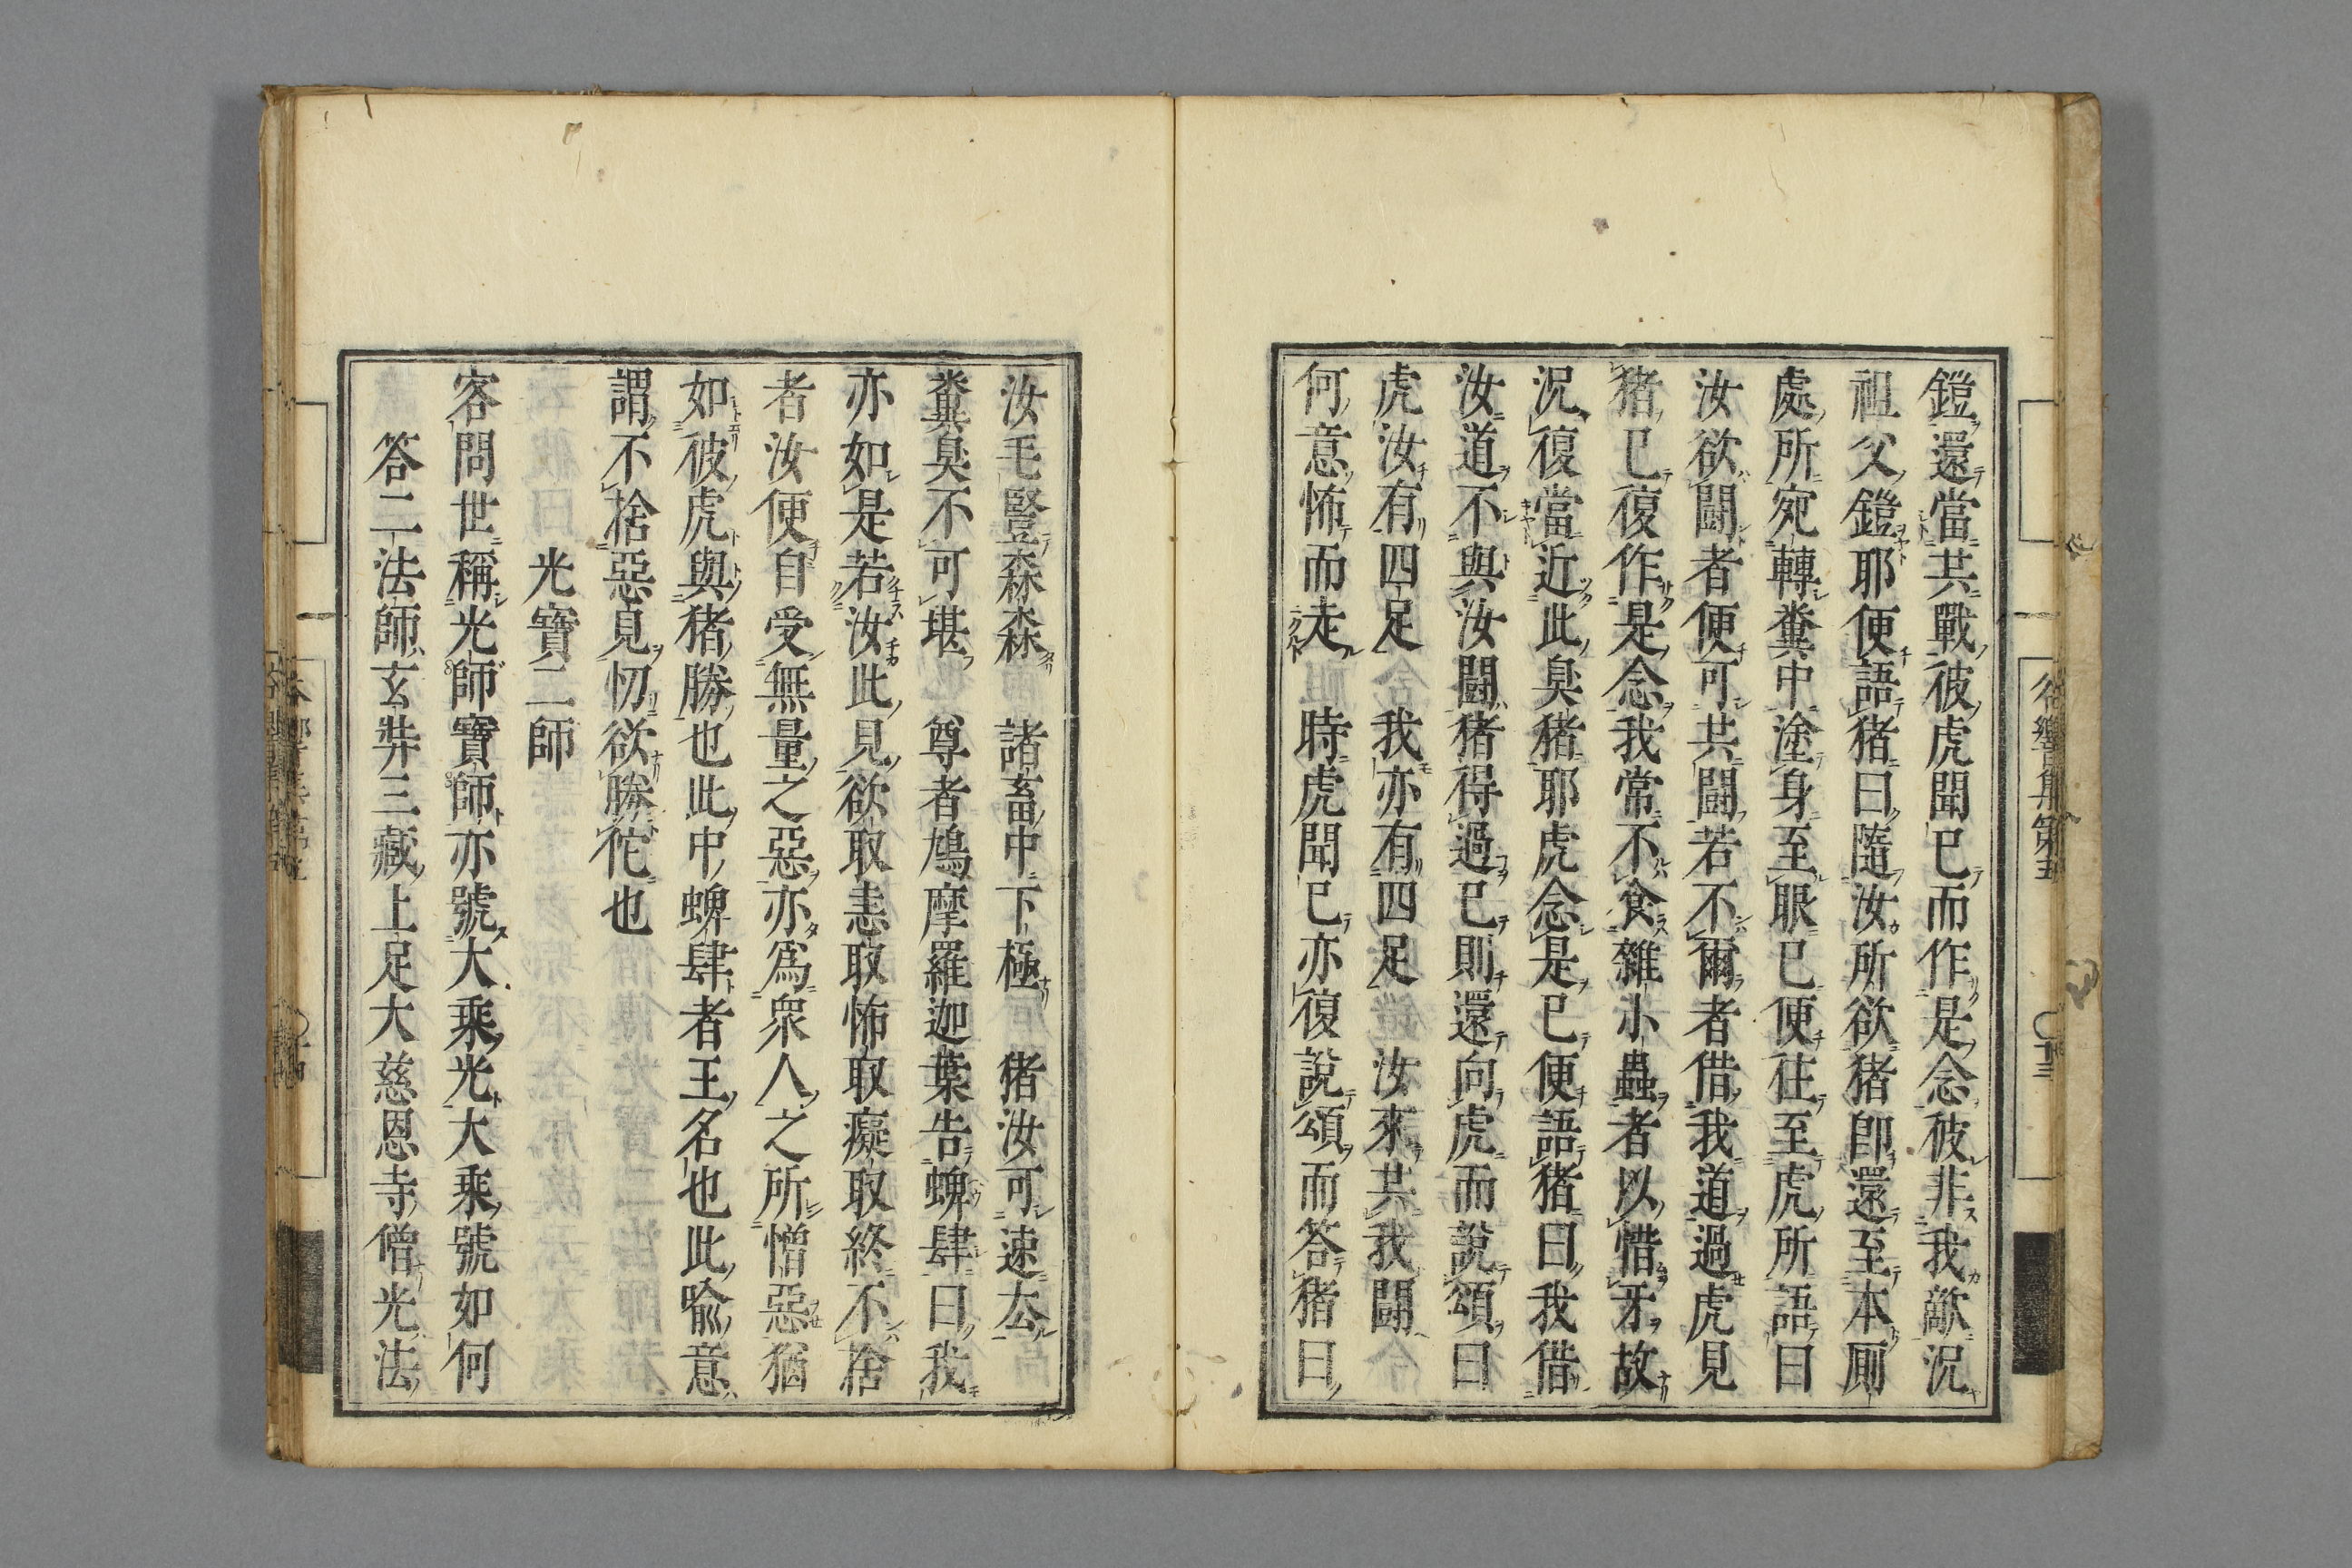 鎧還當共戰彼虎聞已而作是念彼非我敵況
祖父鎧耶便語猪曰隨汝所欲猪卽還至本厠
處所宛轉糞中塗身至眼已便往至虎所語曰
汝欲鬪者便可共鬪若不爾者借我道過虎見
猪已復作是念我常不食雜小蟲者以惜牙故
況復當近此臭猪耶虎念是已便語猪曰我借
汝道不與汝鬪猪得過已則還向虎而說頌曰
虎汝有四足　我亦有四足　汝來共我鬪
何意怖而走　時虎聞已亦復說頌而答猪曰
汝毛豎森森　諸畜中下極　猪汝可速去
糞臭不可堪　尊者鳩摩羅迦葉告蜱肆曰我
亦如是若汝此見欲取恚取怖取癡取終不捨
者汝便自受無量之惡亦爲衆人之所憎惡猶
如彼虎與猪勝也此中蜱肆者王名也此喩意
謂不捨惡見忉欲勝佗也
光寶二師
客問世稱光師寶師亦號大乘光大乘號如何
答二法師玄弉三藏上足大慈恩寺僧光法
谷響集第五
十三